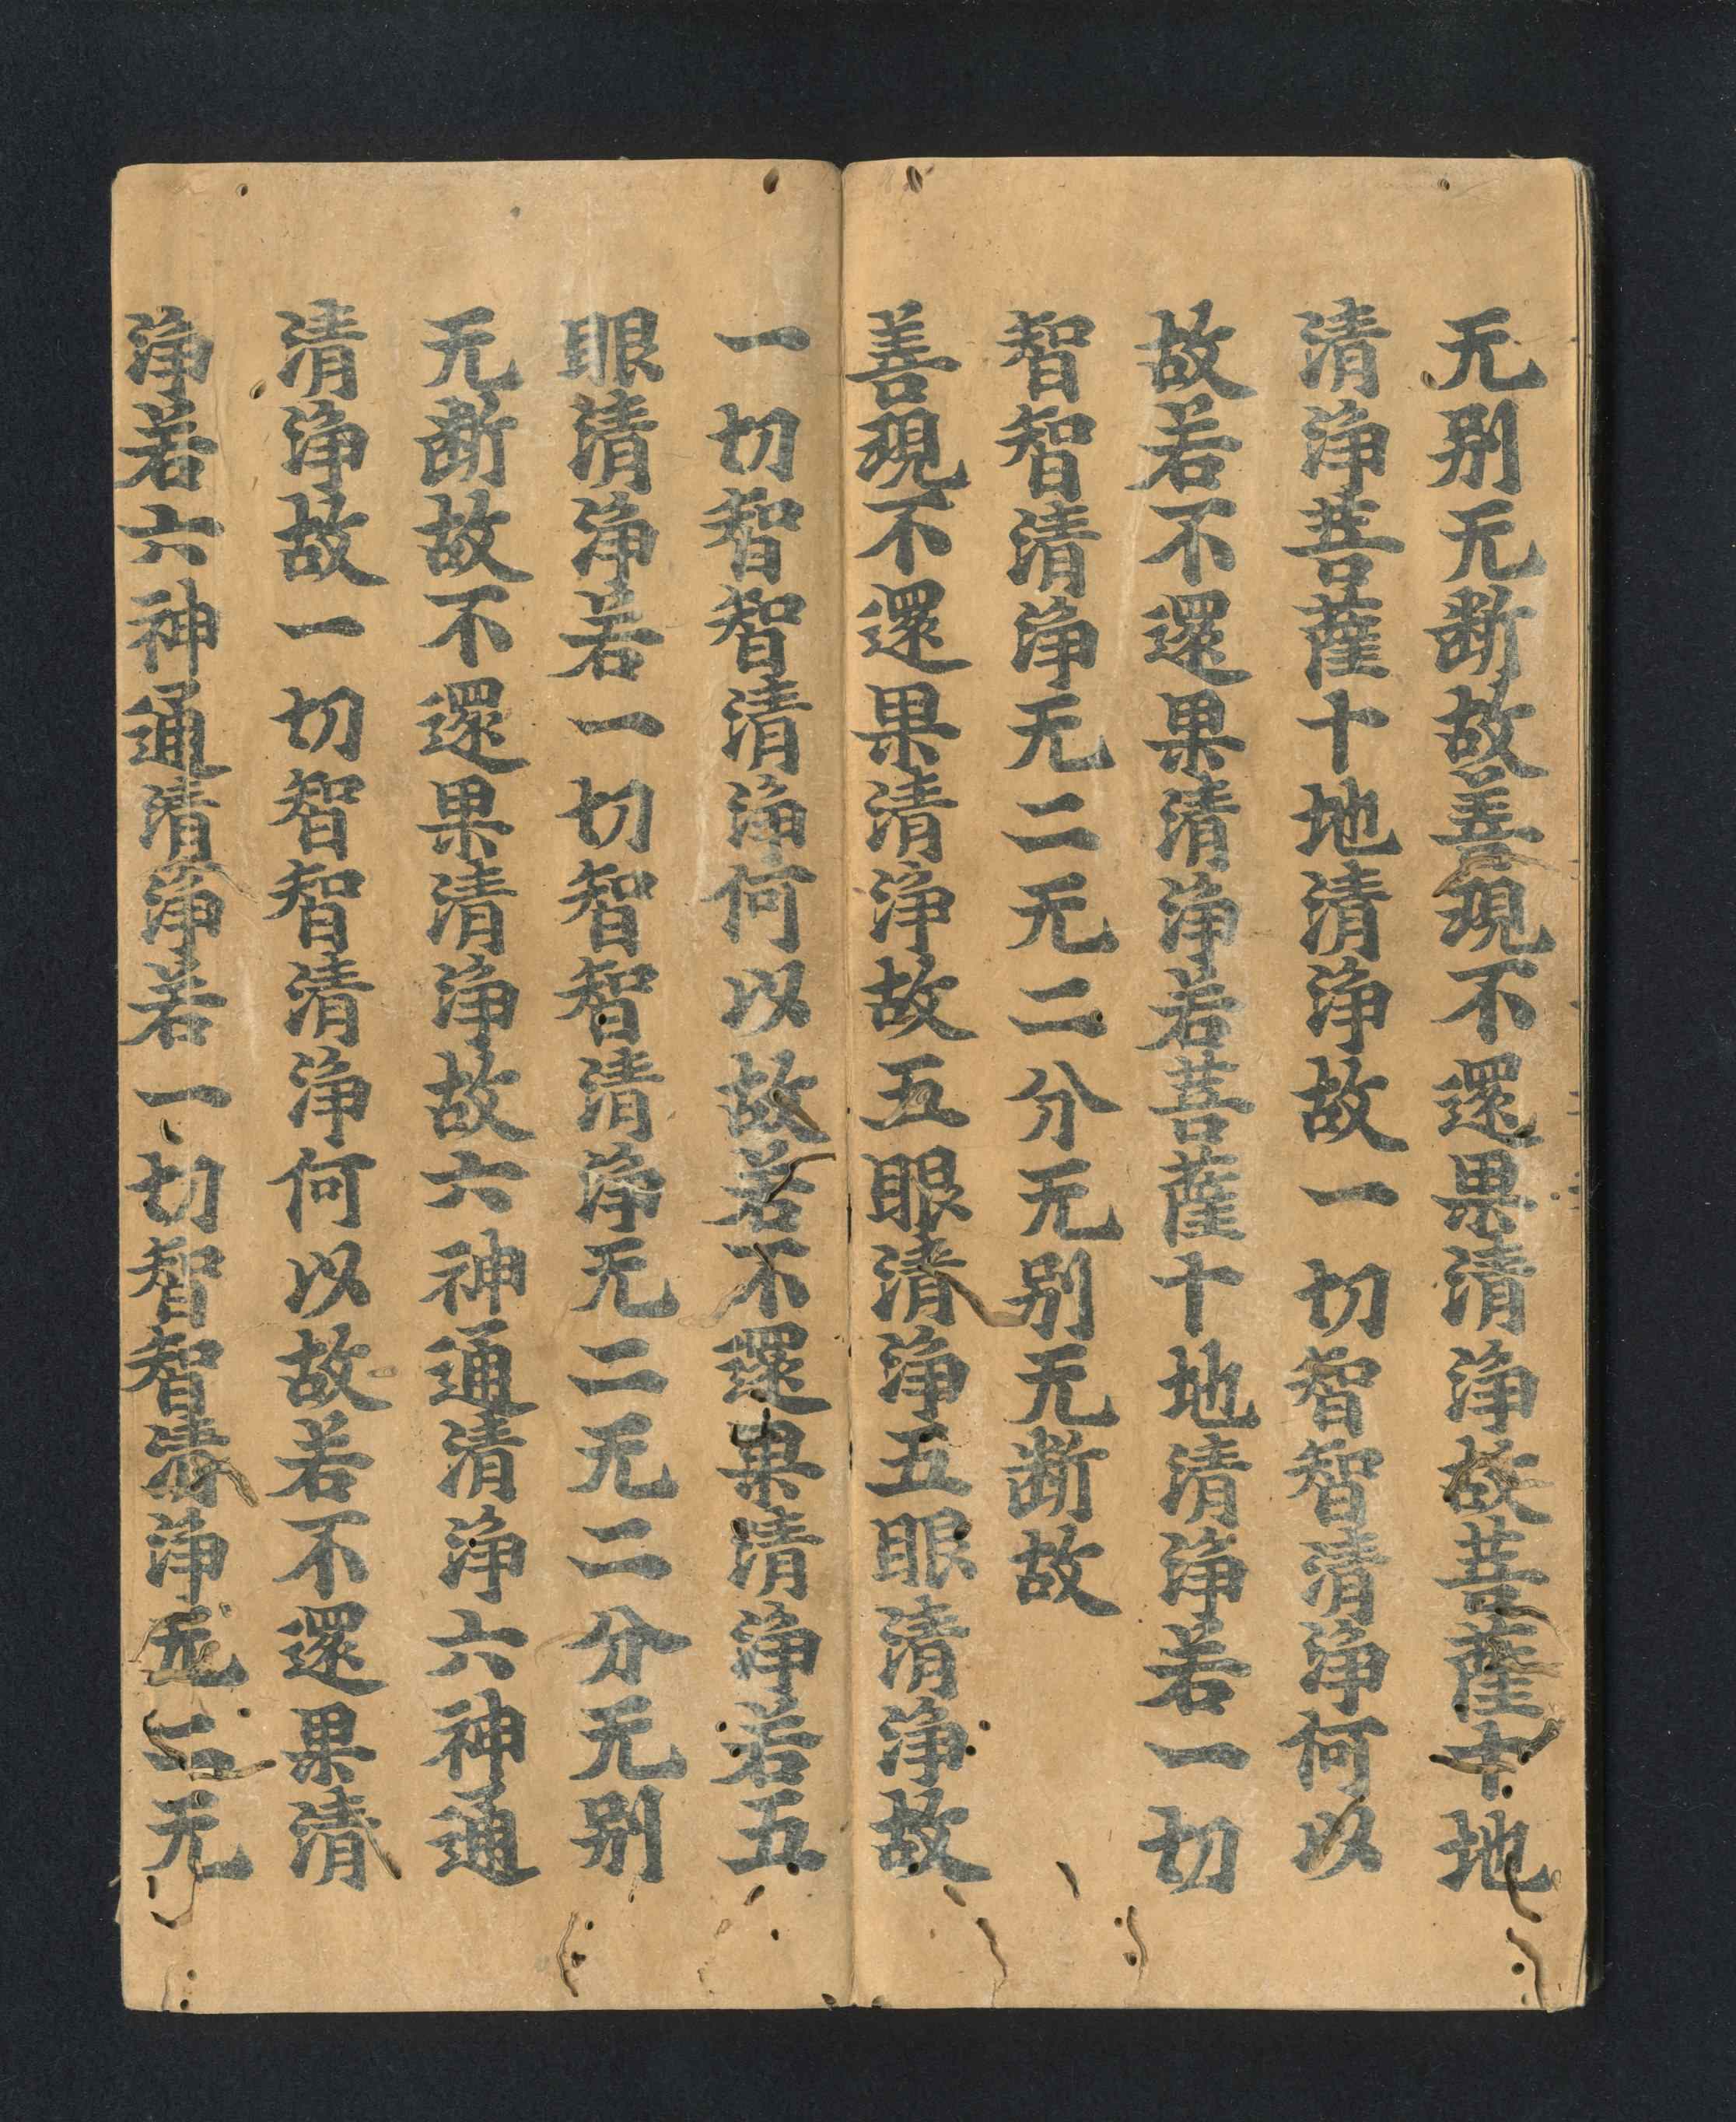 无别无断故善現不還果清淨故菩薩十地
清淨菩薩十地清淨故一切智智清淨何以
故若不還果清淨若菩薩十地清淨若一切
智智清淨无二无二分无别无断故
善現不還果清淨故五眼清淨五眼清淨故
一切智智清淨何以故若不還果清淨若五
眼清淨若一切智智清淨无二无二分无别
无断故不還果清淨故六神通清淨六神通
清淨故一切智智清淨何以故若不還果清
淨若六神通清淨若一切智智清淨无二无